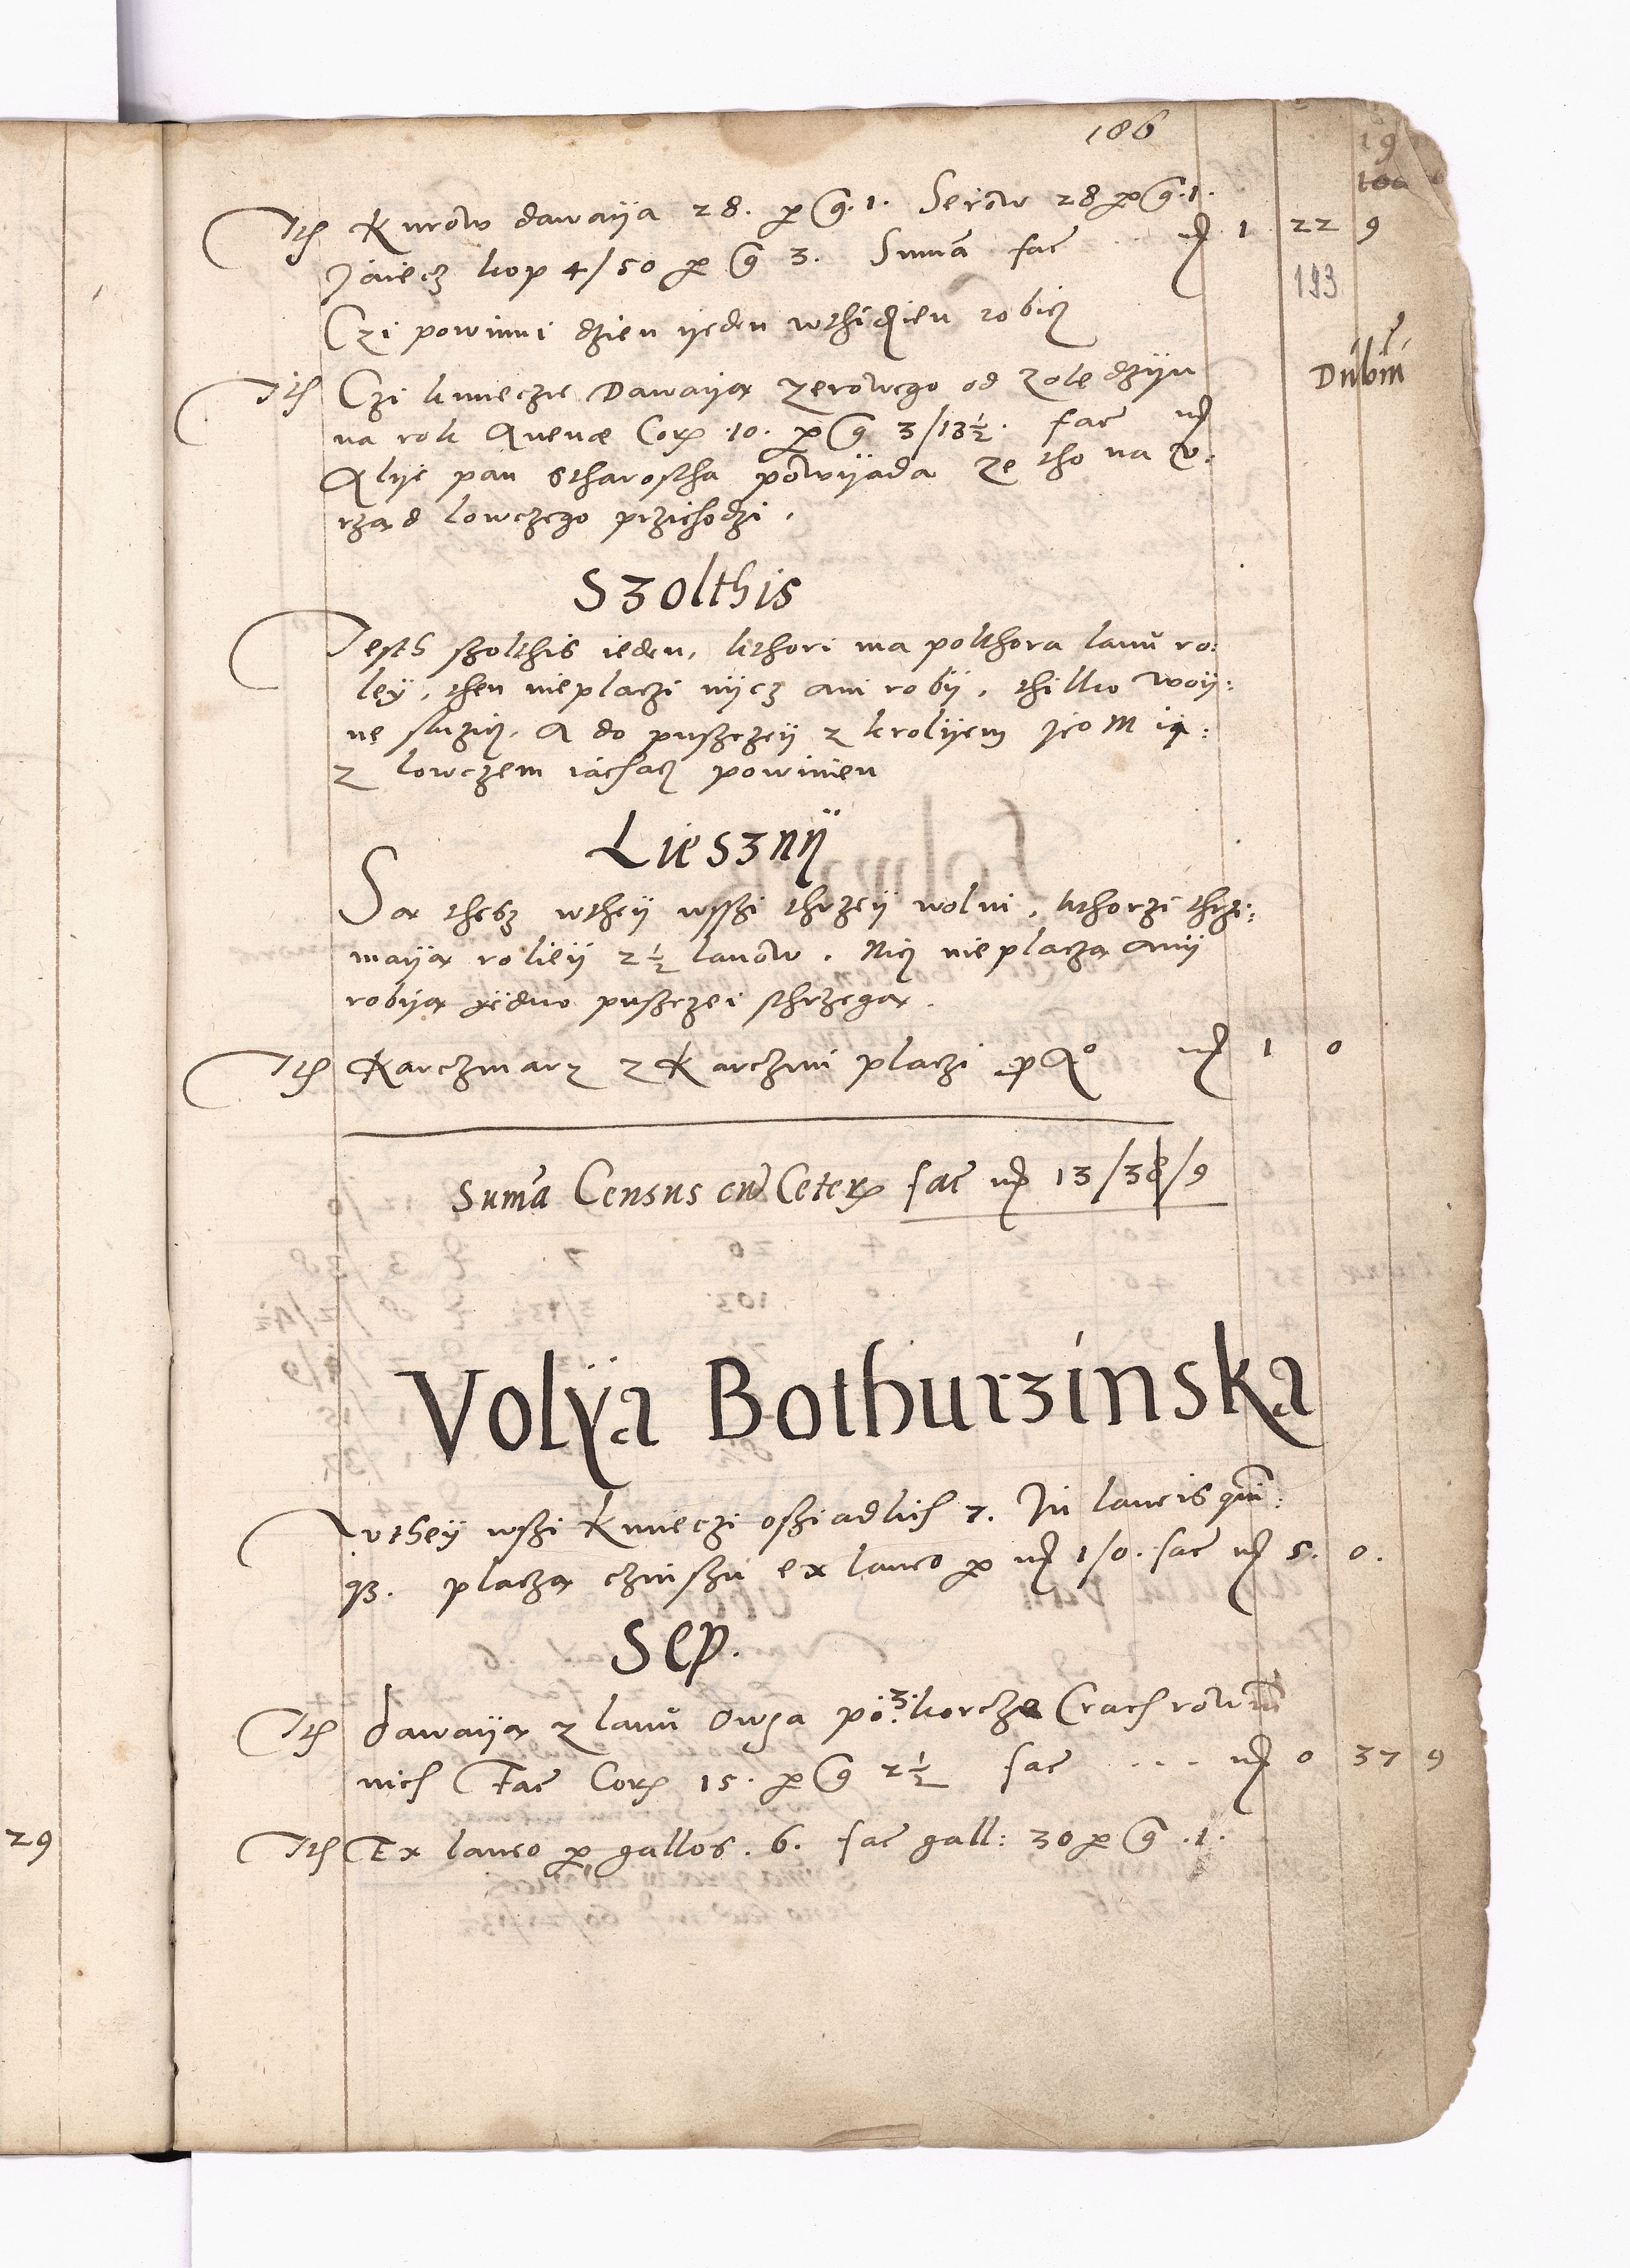 186
19
Ith Kurow dawaya 28. p g. 1. Serow 28 p g. 1.
Jaiecz kop 4/50 p g 3. Suma fac m 1 22 9
193
Czi powinni dzien yeden wthidzien robicz
Ith Czi kmieczie Dawaya zerowego od zoledzyu Dubiu
na rok Avenæ Cor 10. p g 3/13½. fac m
Alye pan Stharostha powyada ze tho na v:
rzad lowczego przichodzi.
Szolthis
Jesth scholthis ieden, kthori ma polthora lanu ro:
ley, then nieplaczi nycz ani roby, thilko woy:
nę sluzicz. A do pusczey z krolyem Jeo M ią:
z lowczem iachacz powinien
Liesznÿ
Sa thesz wthey wsszi thrzey wolni, kthorzi thrzi:
maya roliey 2½ lanow. Nicz nieplacza any
robya iedno pusczei sthrzega.
Ith Karczmarz z Karczmi placzi p Aº m 1 0
Suma Census cu Ceter fac m 13/38/9
Volÿa Bothurzinska
Wthey wszi Kmieczi osziadlich 7. In laneis qui:
q3. placza czinszu ex laneo p m 1/0. fac m 5. 0.
Sep.
Ith dawaya z lanu Owsa po 3. korcza Crachrowim
nich Fac Cor 15. p g 2½ fac ... m 0 37 9
Ith Ex laneo p gallos. 6. fac gall: 30 p g .1.
29